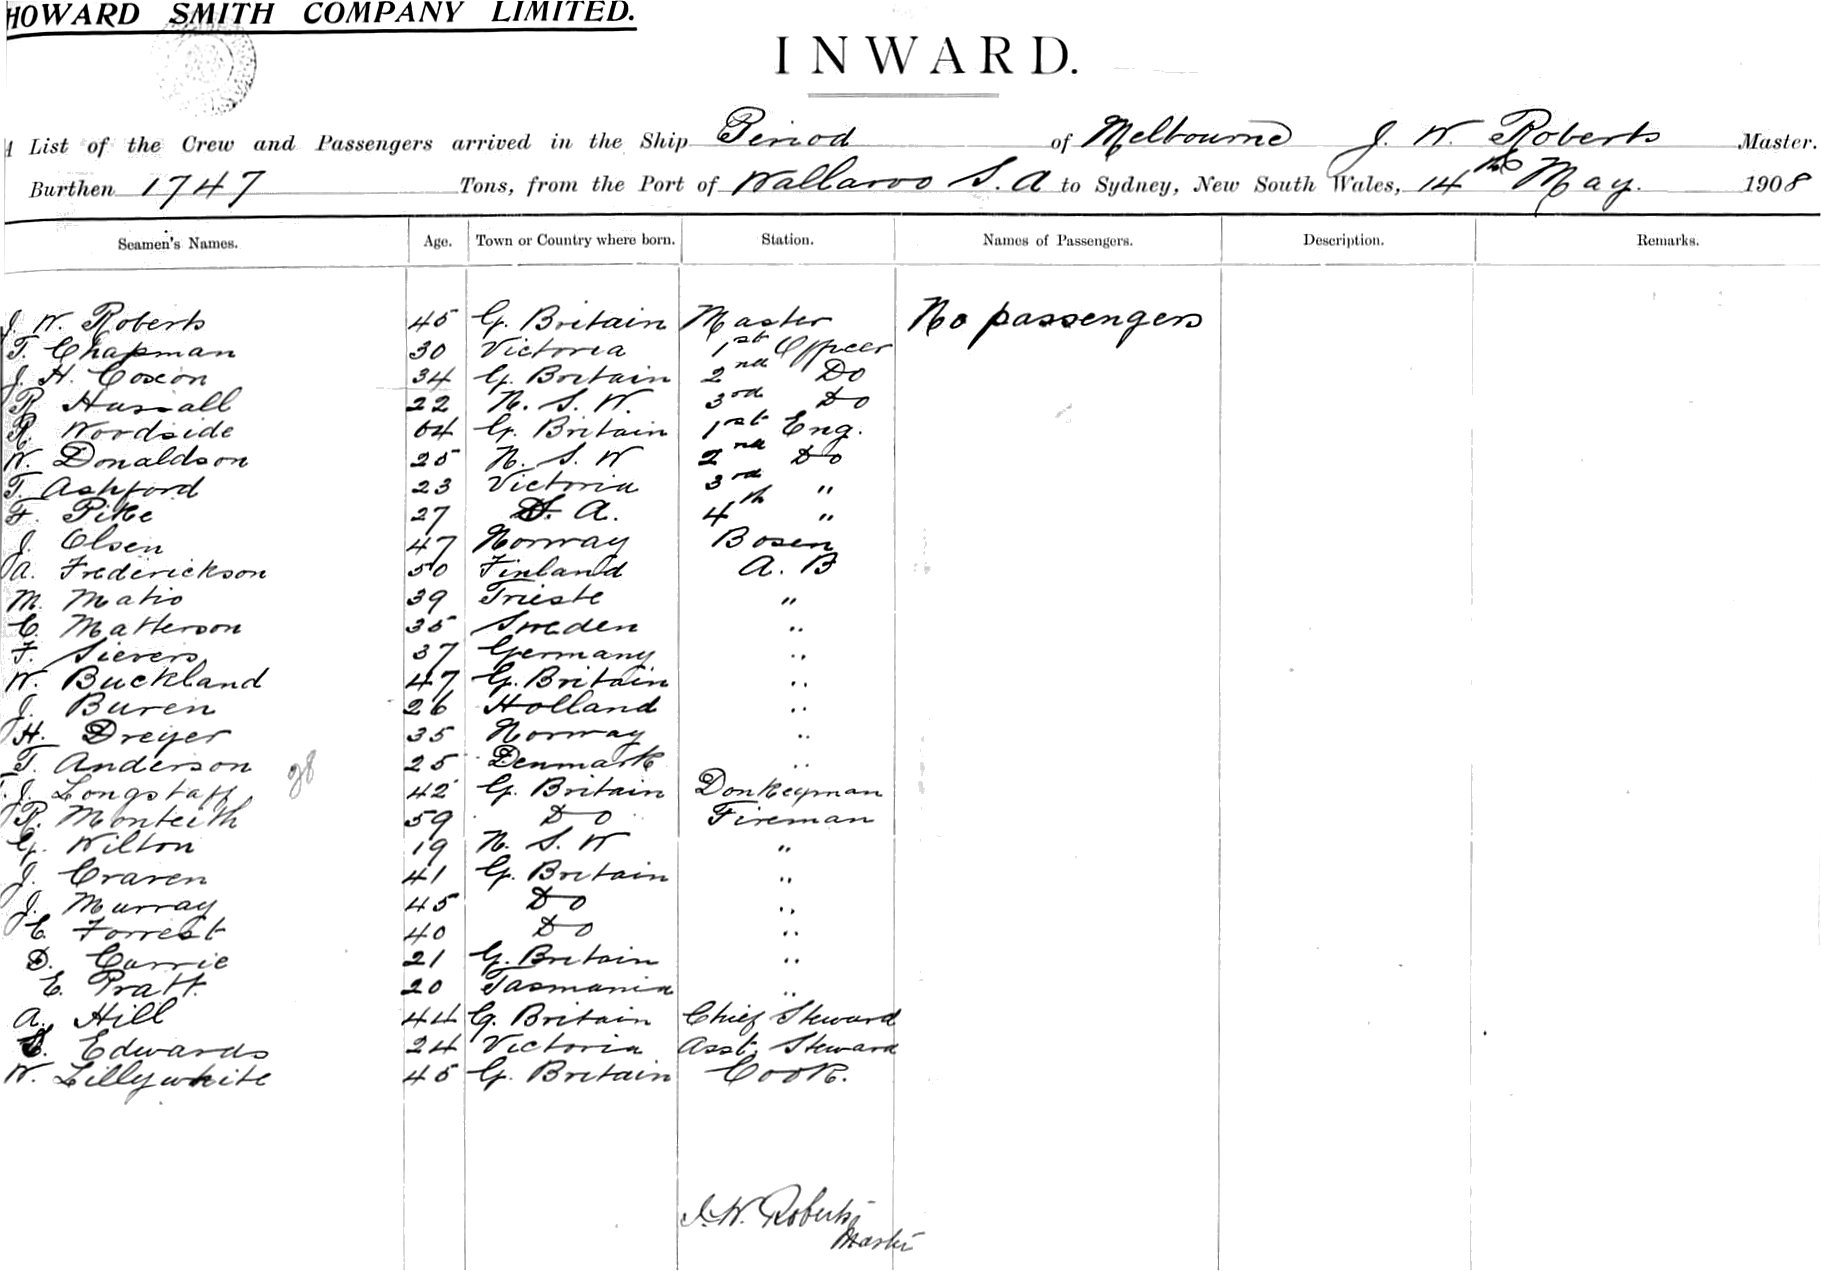 HOWARD SMITH COMPANY LIMITED.
INWARD.
List of the Crew and Passengers arrived in the Ship Period of Melbourne J. W. Roberts Master.
Burthen 1747 Tons, from the Port of Wallaroo S. A to Sydney, New South Wales, 14th May. 1908
Seamen's Names. Age. Town or Country where born. Station. Names of Passengers. Description. Remarks.
J. W. Roberts 45 G. Britain Master No passengers
T. Chapman 30 Victoria 1st Officer
J. H. Coxon 34 G. Britain 2nd Do
R. Hassall 22 N. S. W. 3rd Do
R. Woodside 64 G. Britain 1st Eng.
W. Donaldson 25 N. S. W 2nd Do
T. Ashford 23 Victoria 3rd "
F. Pike 27 S. A. 4th "
J. Olsen 47 Norway Bosen
A. Frederickson 50 Finland A. B
M. Matio 39 Trieste "
C. Matterson 35 Sweden "
F. Sievers 37 Germany "
W. Buckland 47 G. Britain "
J. Buren 26 Holland "
H. Dreyer 35 Norway "
T. Anderson 25 Denmark "
28
J. Longstaff 42 G. Britain Donkeyman
R. Monteith 59 Do Fireman
G. Wilton 19 N. S. W "
J. Craven 41 G. Britain "
J. Murray 45 Do "
C. Forrest 40 Do "
D. Currie 21 G. Britain "
E. Pratt. 20 Tasmania "
A. Hill 44 G. Britain Chief Steward
Edwards 24 Victoria Asst. Steward
W. Lillywhite 45 G. Britain Cook.
J. W. Roberts
Master